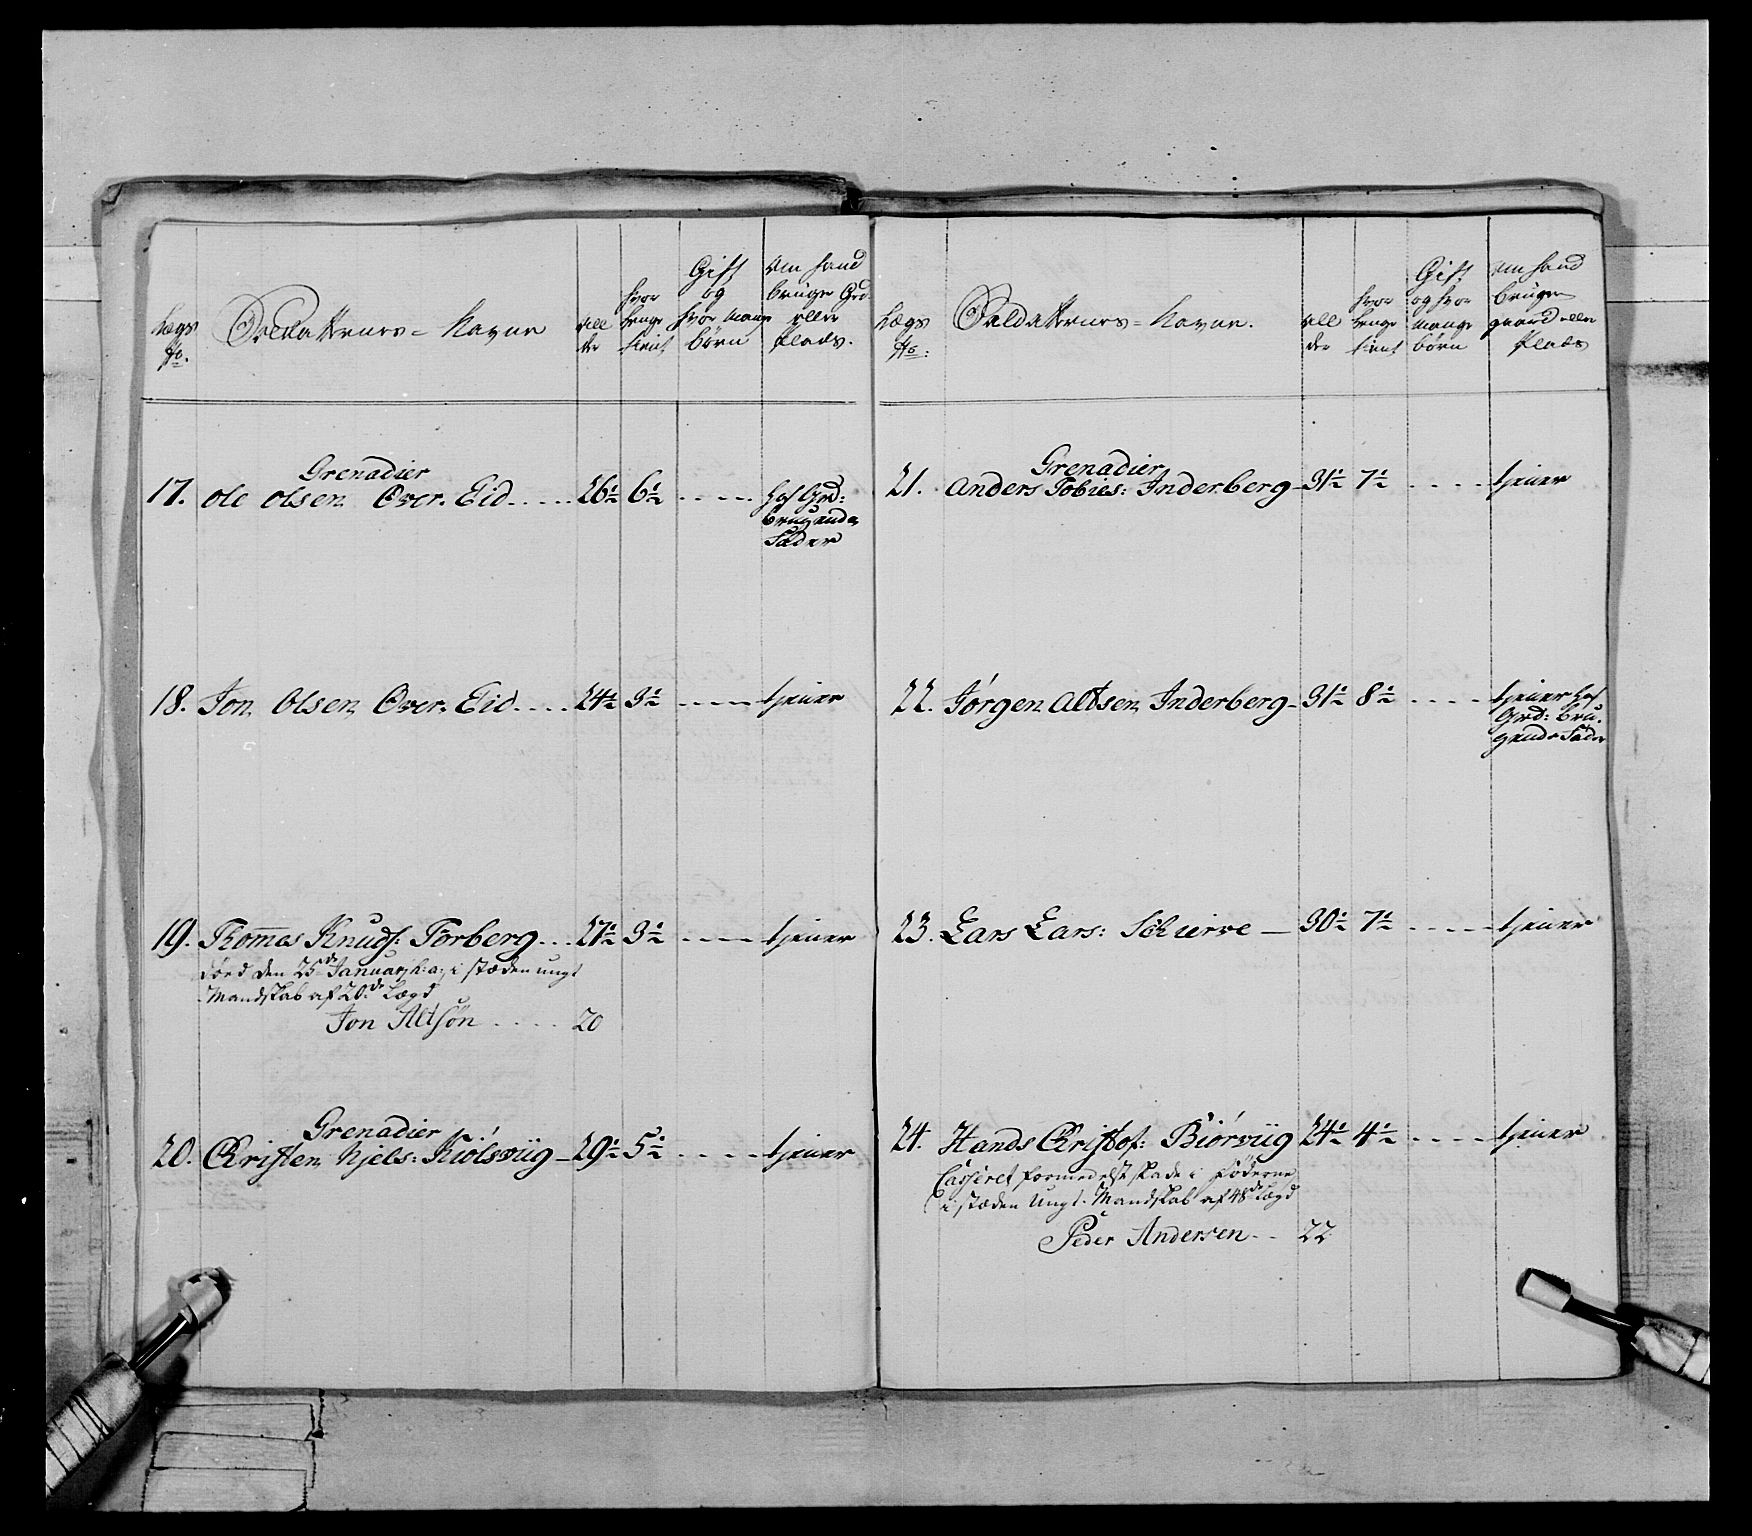 Lægs No.
Soldatternes = Navne
All der
hvor lenge tient
Gift og hvor mange børn
om hand bruger Grd. eller Plads.
Grenadier
17. Ole Olsen Over Eid .... 26½ 6½ ----- hos Grd: brugende
Fader
18. Jon Olsen Over Eid .... 24½ 3½ ----- tjener
19. Thomas Knuds: Torberg ... 27½ 3½ ----- tjener
død den 25de Januarj h: a: i stæden ungt
Mandskab af 20de Lægd
Jon Altsøn ..... 20
Grenadier
20. Christen Njels: Kiölsviig - 29½ 5½ ----- tjener
Lægs No:
Soldatternes = Navne.
All der
hvor lenge tient
Gift og hvor mange børn
om hand bruger gaard eller Plads
Grenadier
21. Anders Tobies: Inderberg - 31½ 7½ ---- tjener
22. Jörgen Altsen Inderberg - 31½ 8½ ---- tjener hos
Grd: bru-
gende Fader
23. Lars Lars: Schierve — 30½ 7½ ----- tjener
24. Hands Christof: Biörviig 24½ 4½ ---- tjener
Casseret formedelst skade i Föderne
i stæden Ungt Mandskab af 48de Lægd
Peder Andersen -- 22